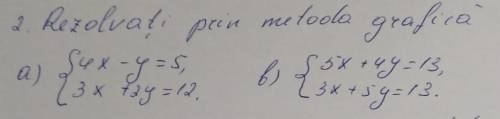 2. Rezolvați prin metoda grafică
a) { 4x - y = 5,   b) { 5x + 4y = 13,
3x + 2y = 12.   3x + 5y = 13.